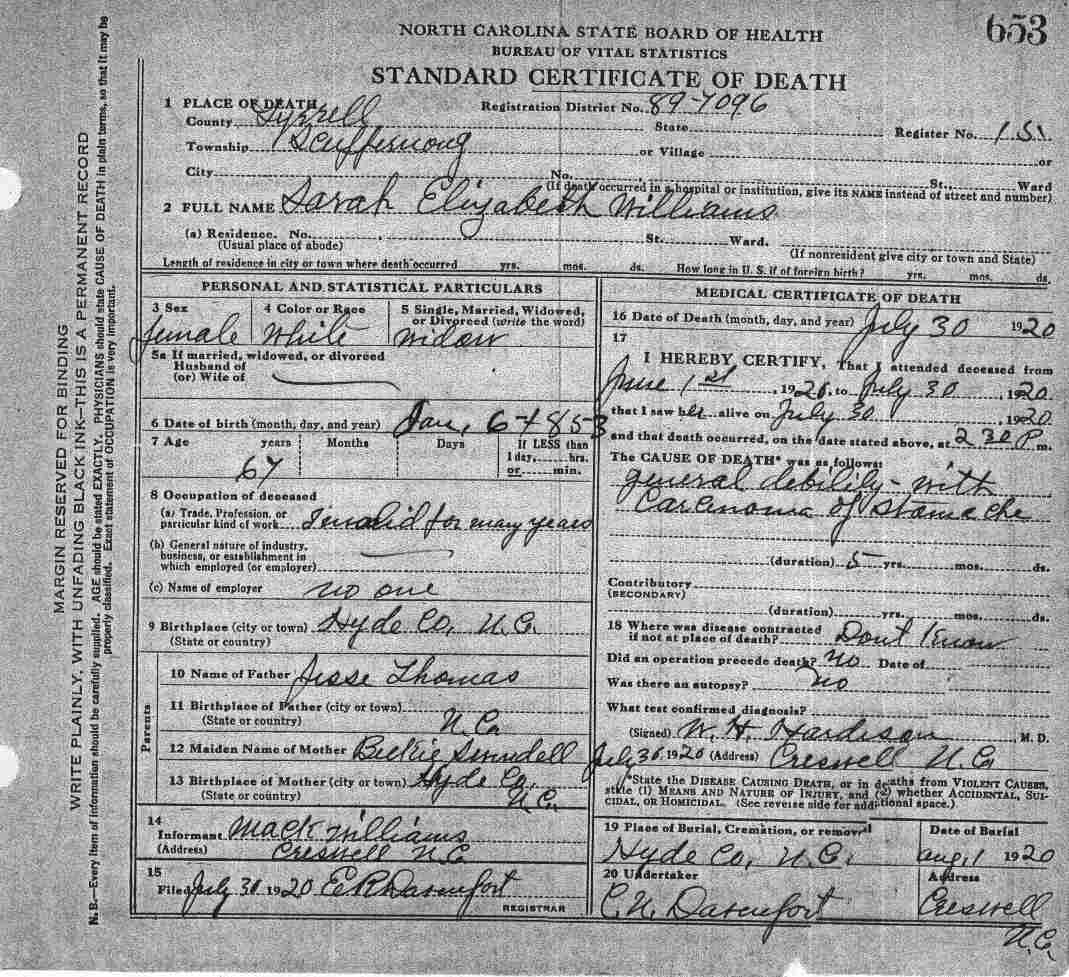 653
NORTH CAROLINA STATE BOARD OF HEALTH
BUREAU OF VITAL STATISTICS
STANDARD CERTIFICATE OF DEATH
MARGIN RESERVED FOR BINDING
WRITE PLAINLY, WITH UNFADING BLACK INK—THIS IS A PERMANENT RECORD
N. B.—Every item of information should be carefully supplied. AGE should be stated EXACTLY. PHYSICIANS should state CAUSE OF DEATH in plain terms, so that it may be
properly classified. Exact statement of OCCUPATION is very important.
1 PLACE OF DEATH
Registration District No. 89-7096
County Tyrrell State Register No.
Township Scuppernong or Village or
City No. St. Ward
(If death occurred in a hospital or institution, give its NAME instead of street and number)
2 FULL NAME Sarah Elizabeth Williams
(a) Residence. No. St. Ward.
(Usual place of abode) (If nonresident give city or town and State)
Length of residence in city or town where death occurred yrs. mos. ds. How long in U. S. if of foreign birth? yrs. mos. ds.
PERSONAL AND STATISTICAL PARTICULARS
3 Sex 4 Color or Race 5 Single, Married, Widowed,
or Divorced (write the word)
female White widow
5a If married, widowed, or divorced
Husband of
(or) Wife of
6 Date of birth (month, day, and year) Jan, 6-1853
7 Age years Months Days If LESS than
1 day, hrs.
or min.
67
8 Occupation of deceased
(a) Trade, Profession, or
particular kind of work Invalid for many years
(b) General nature of industry,
business, or establishment in
which employed (or employer)
(c) Name of employer no one
9 Birthplace (city or town) Hyde Co, N.C.
(State or country)
Parents
10 Name of Father Jesse Thomas
11 Birthplace of Father (city or town)
(State or country) N.C.
12 Maiden Name of Mother Beckie Swindell
13 Birthplace of Mother (city or town) Hyde Co,
(State or country) N.C.
14
Informant Mack Williams
(Address) Creswell N.C.
15
Filed July 30 1920 E R Davenport
REGISTRAR
MEDICAL CERTIFICATE OF DEATH
16 Date of Death (month, day, and year) July 30 1920
17
I HEREBY CERTIFY, That I attended deceased from
June 1st 1920, to July 30 1920
that I saw her alive on July 30 1920
and that death occurred, on the date stated above, at 2 30 P m.
The CAUSE OF DEATH* was as follows:
general debility - with
Carcinoma of Stomache
(duration) 5 yrs. mos. ds.
Contributory
(SECONDARY)
(duration) yrs. mos. ds.
18 Where was disease contracted
if not at place of death? Dont Know
Did an operation precede death? no Date of
Was there an autopsy? no
What test confirmed diagnosis?
(Signed) W. H. Hardison M. D.
July 30, 1920 (Address) Creswell N.C.
*State the DISEASE CAUSING DEATH, or in deaths from VIOLENT CAUSES,
state (1) MEANS AND NATURE OF INJURY, and (2) whether ACCIDENTAL, SUI-
CIDAL, or HOMICIDAL. (See reverse side for additional space.)
19 Place of Burial, Cremation, or removal Date of Burial
Hyde Co, N.C. Aug, 1 1920
20 Undertaker Address
C. N. Davenport Creswell
N.C.